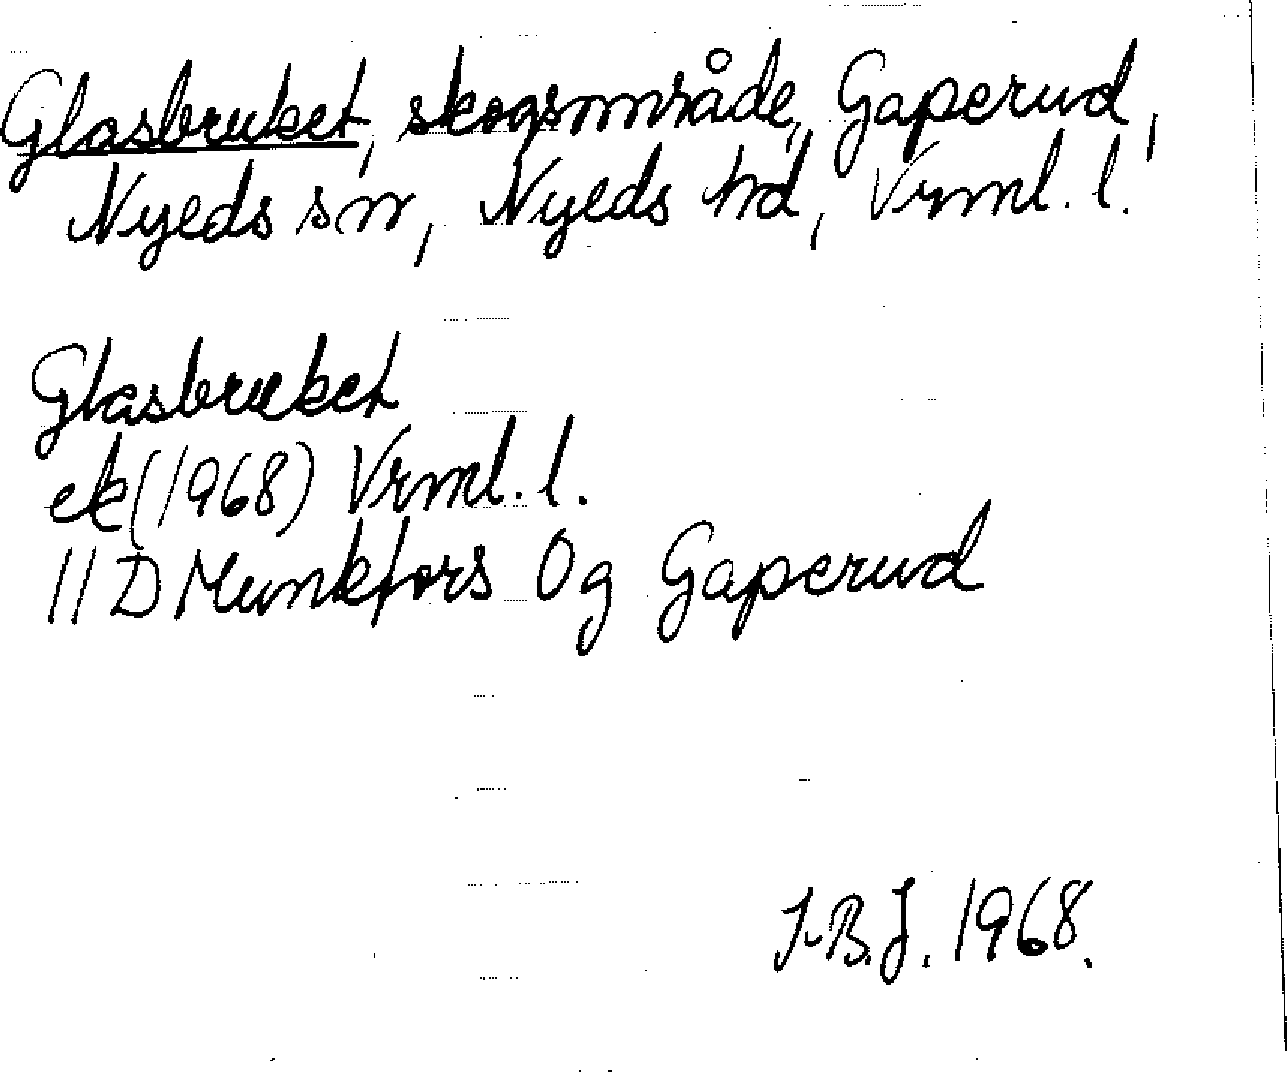 Glasbruket, skogsområde, Gaperud,
Nyeds sn, Nyeds hd, Vrml. l.
Glasbruket
ek (1968) Vrml. l.
11 D Munkfors Og Gaperud
I-B.J. 1968.